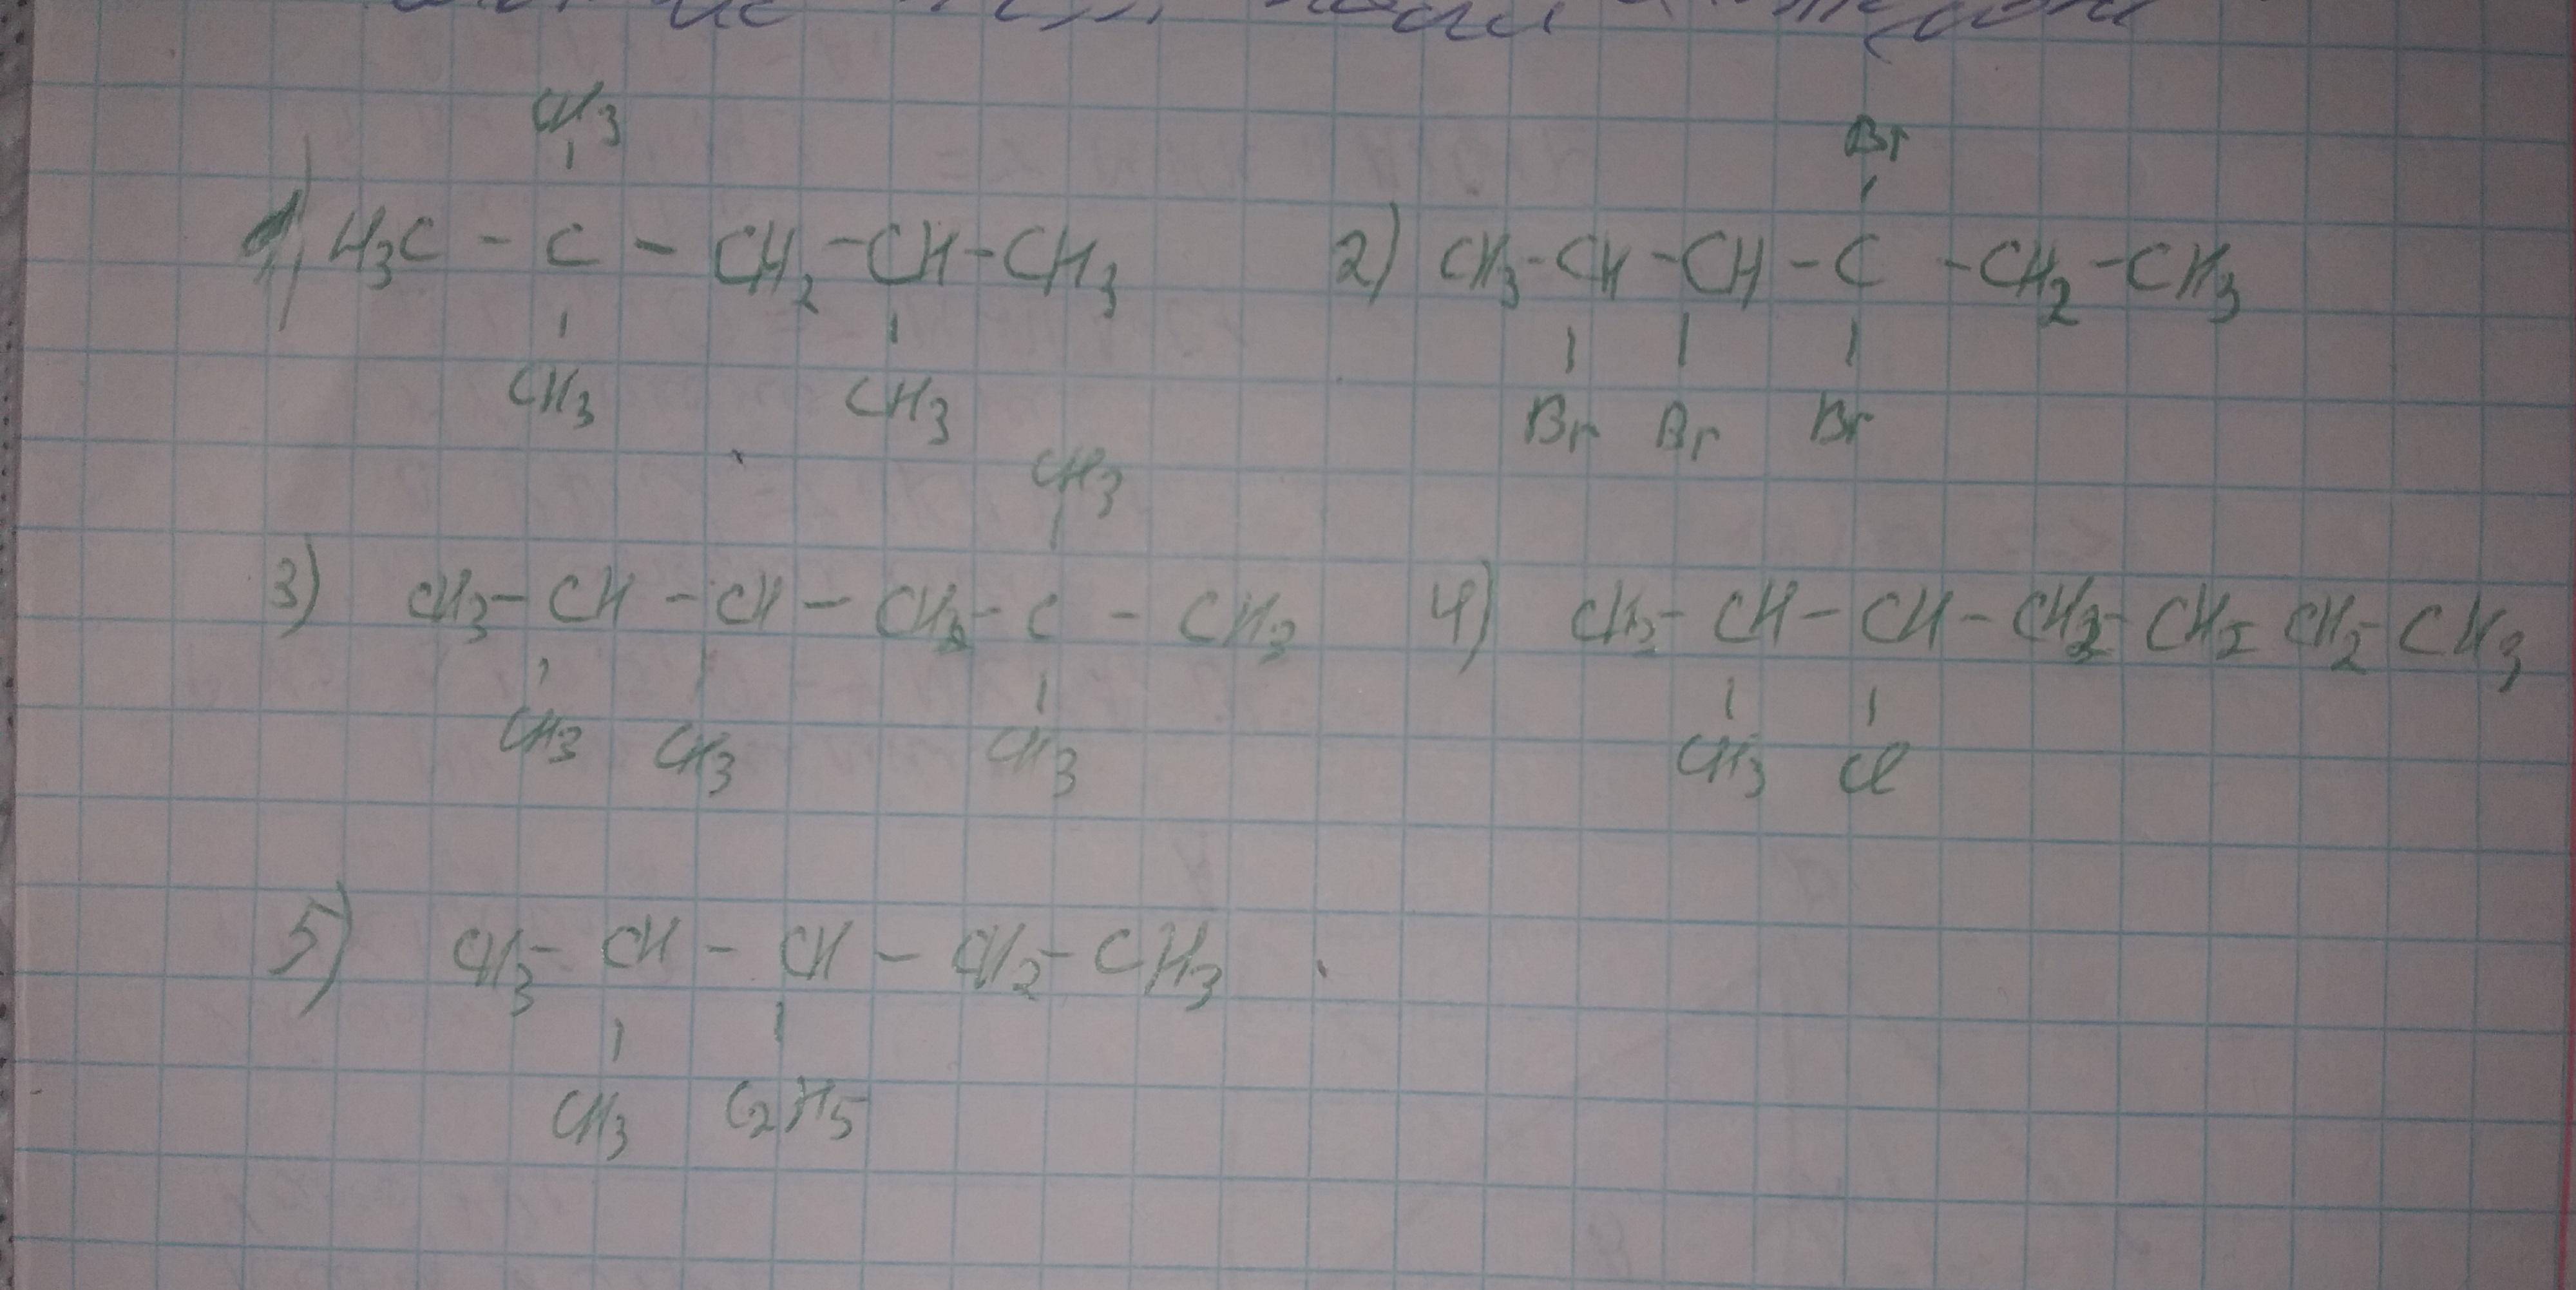 CH3
Br
1) H3C - C - CH2 - CH - CH3
2) CH3 - CH - CH - C - CH2 - CH3
CH3 CH3
Br Br Br
CH3
3) CH3 - CH - CH - CH2 - C - CH3
4) CH3 - CH - CH - CH2 - CH2 CH2 - CH3
CH3 CH3 CH3
CH3 Cl
5) CH3 - CH - CH - CH2 - CH3
CH3 C2H5